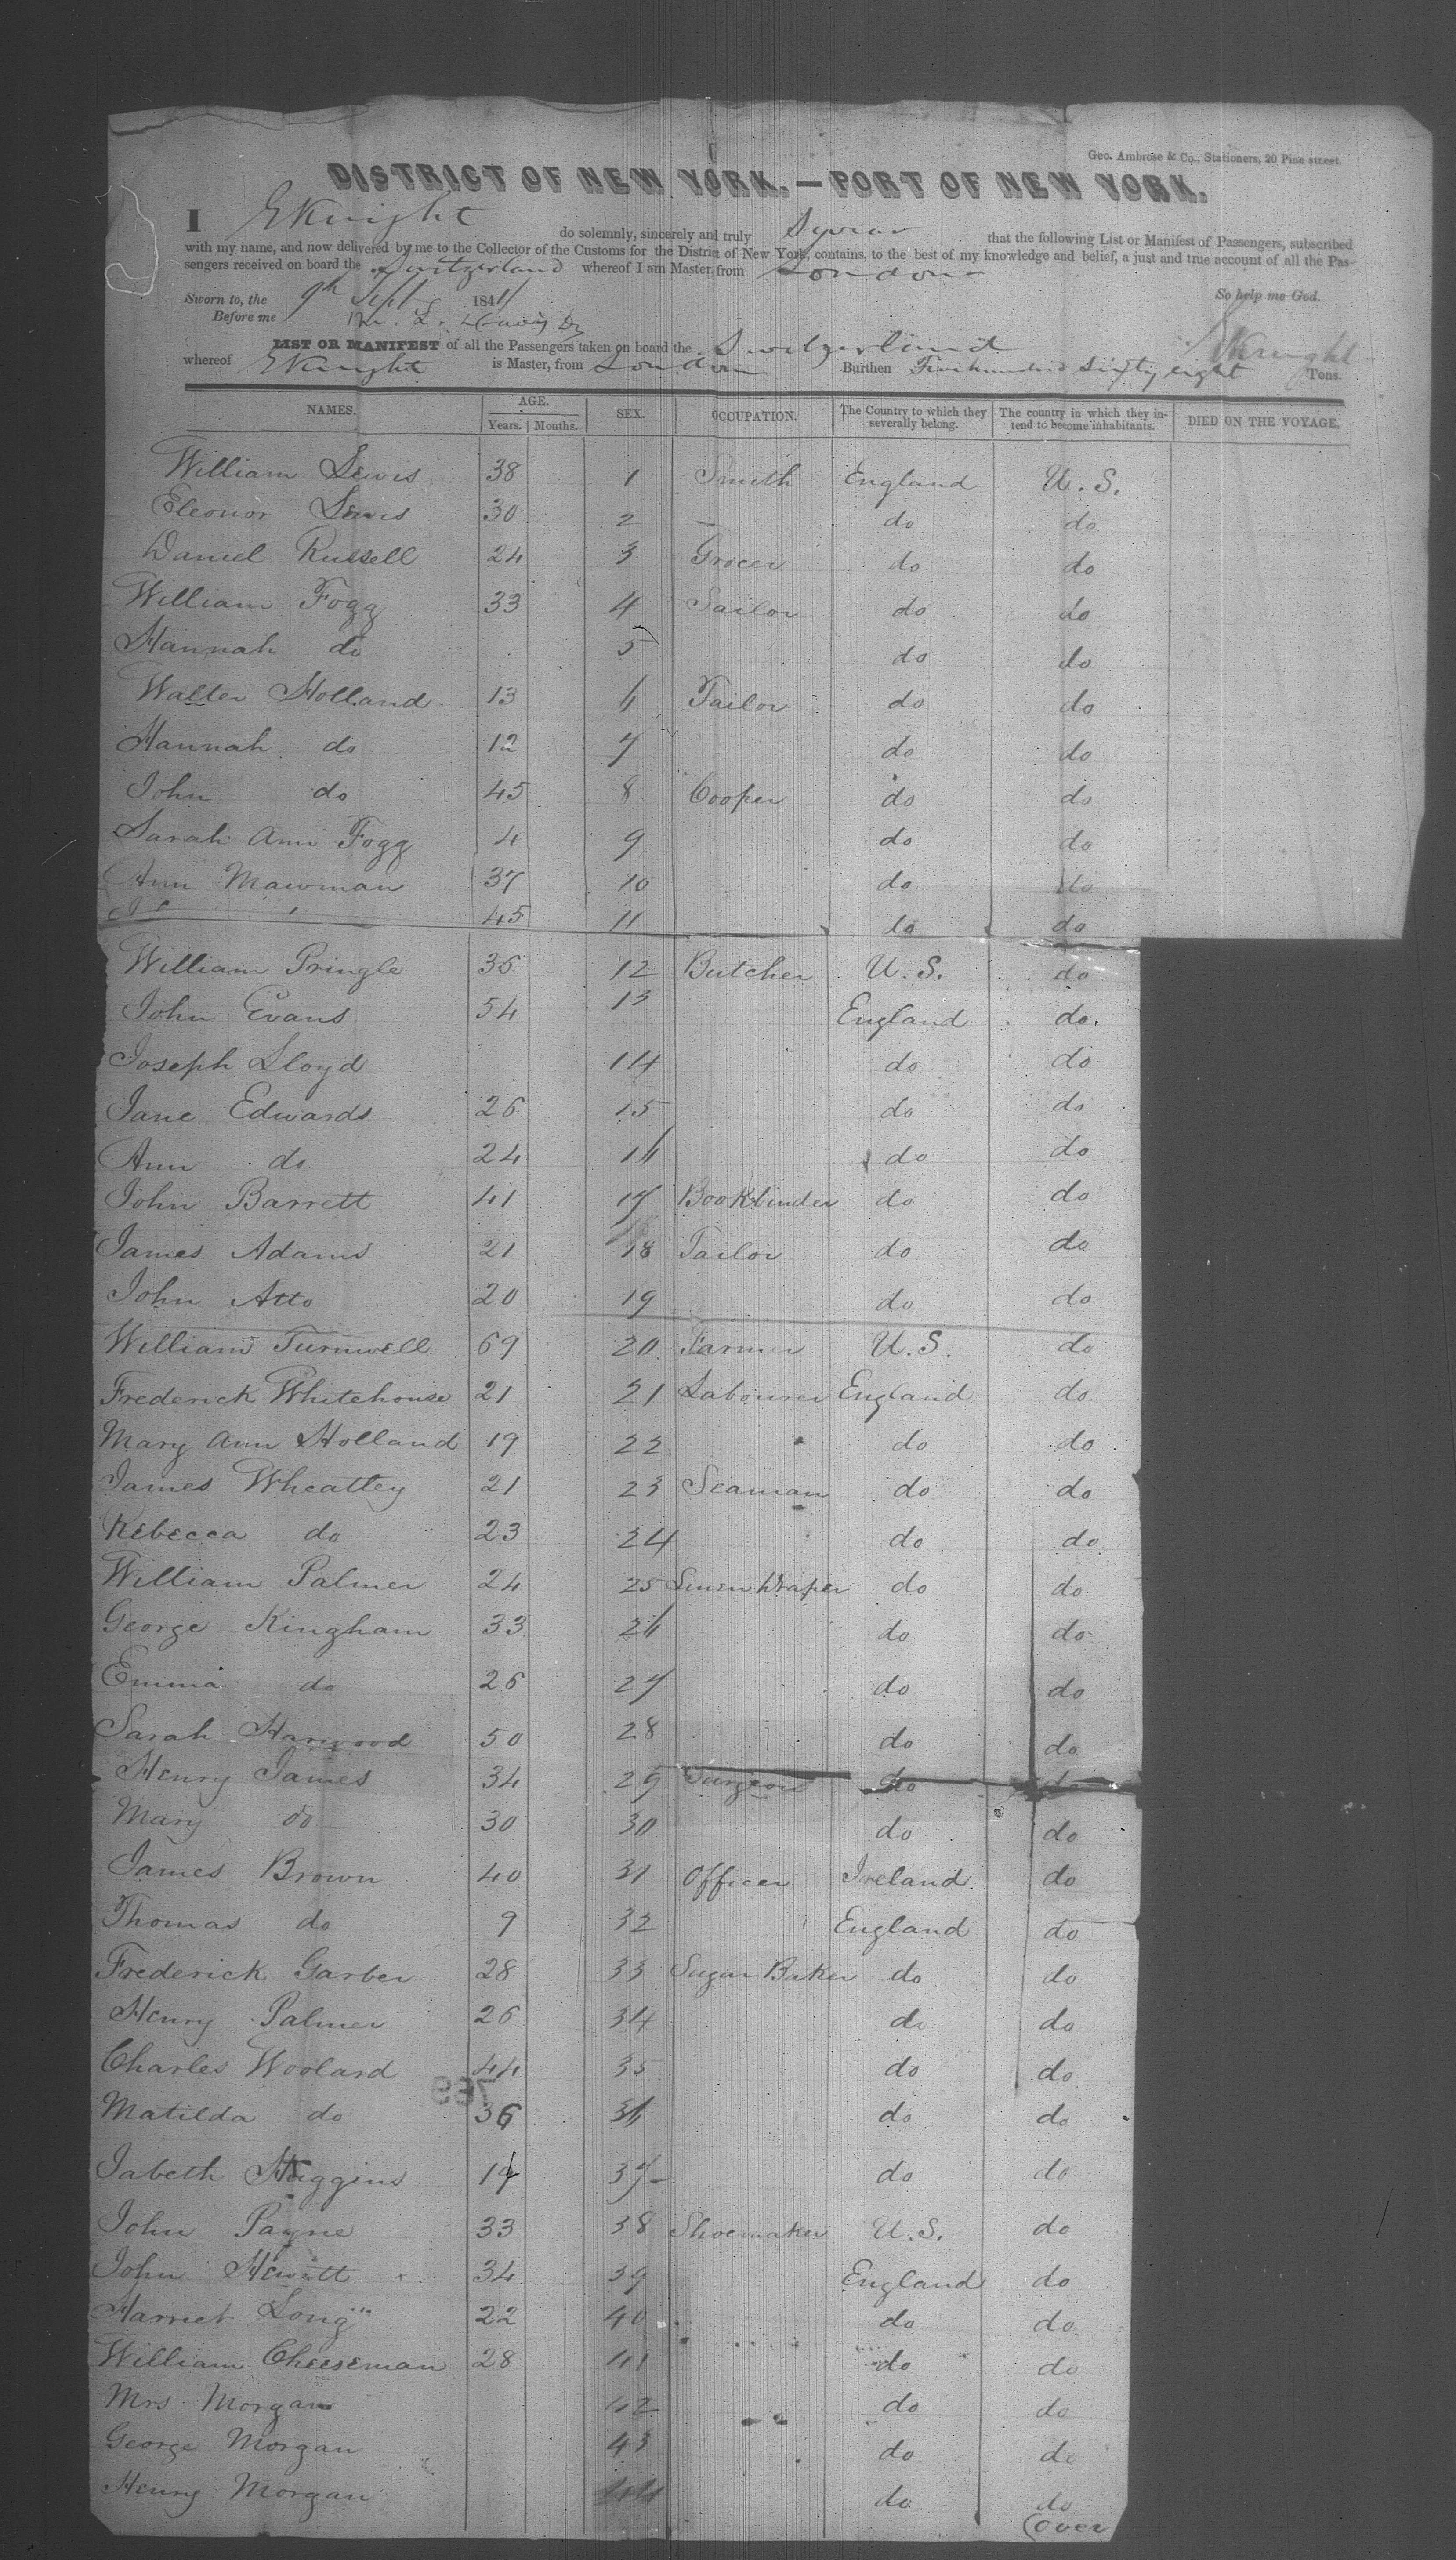 Geo. Ambrose & Co., Stationers, 20 Pine street.
DISTRICT OF NEW YORK.—PORT OF NEW YORK.
I E Knight do solemnly, sincerely and truly Swear that the following List or Manifest of Passengers, subscribed
with my name, and now delivered by me to the Collector of the Customs for the District of New York, contains, to the best of my knowledge and belief, a just and true account of all the Pas-
sengers received on board the Switzerland whereof I am Master, from London
Sworn to, the 9th Sept 184 So help me God.
Before me
E Knight
LIST OR MANIFEST of all the Passengers taken on board the Switzerland
whereof E Knight is Master, from London Burthen Five hundred Sixty eight Tons.
NAMES. AGE. Years. Months. SEX. OCCUPATION. The Country to which they severally belong. The country in which they intend to become inhabitants. DIED ON THE VOYAGE.
William Lewis 38 1 Smith England U.S.
Eleonor Lewis 30 2 — do do
Daniel Russell 24 3 Grocer do do
William Fogg 33 4 Sailor do do
Hannah do 5 do do
Walter Holland 13 6 Tailor do do
Hannah do 12 7 do do
John do 45 8 Cooper do do
Sarah Ann Fogg 4 9 do do
Ann Mawman 37 10 do do
45 11 do do
William Pringle 36 12 Butcher U.S. do
John Evans 54 13 England do.
Joseph Lloyd 14 do do
Jane Edwards 26 15 do do
Ann do 24 16 do do
John Barrett 41 17 Bookbinder do do
James Adams 21 18 Tailor do do
John Atto 20 19 do do
William Turnwell 69 20 Farmer U.S. do
Frederick Whitehouse 21 21 Labourer England do
Mary Ann Holland 19 22 do do
James Wheatley 21 23 Seaman do do
Rebecca do 23 24 do do
William Palmer 24 25 Linen Draper do do
George Kingham 33 26 do do
Emma do 26 27 do do
Sarah Harwood 50 28 do do
Henry James 34 29 Surgeon do do
Mary do 30 30 do do
James Brown 40 31 Officer Ireland do
Thomas do 9 32 England do
Frederick Garber 28 33 Sugar Baker do do
Henry Palmer 26 34 do do
Charles Woolard 44 35 do do
Matilda do 36 36 do do
Jabeth Huggins 37 do do
John Payne 33 38 Shoemaker U.S. do
John Hewitt 34 39 England do
Harriet Long 22 40 do do
William Cheeseman 28 41 do do
Mrs Morgan 42 do do
George Morgan 43 do do
Henry Morgan 44 do do
(over